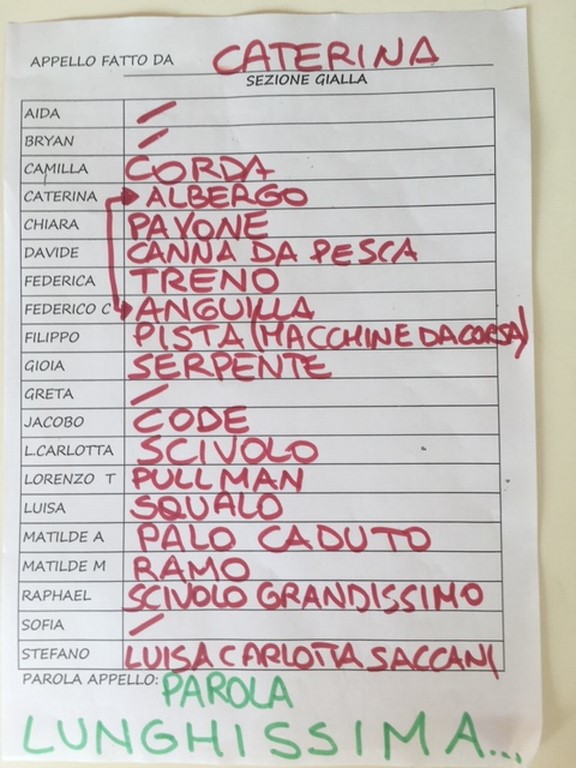 APPELLO FATTO DA CATERINA
SEZIONE GIALLA
AIDA /
BRYAN /
CAMILLA CORDA
CATERINA ALBERGO
CHIARA PAVONE
DAVIDE CANNA DA PESCA
FEDERICA TRENO
FEDERICO C ANGUILLA
FILIPPO PISTA (MACCHINE DA CORSA)
GIOIA SERPENTE
GRETA /
JACOBO CODE
L.CARLOTTA SCIVOLO
LORENZO T PULLMAN
LUISA SQUALO
MATILDE A PALO CADUTO
MATILDE M RAMO
RAPHAEL SCIVOLO GRANDISSIMO
SOFIA /
STEFANO LUISA CARLOTTA SACCANI
PAROLA APPELLO: PAROLA
LUNGHISSIMA...